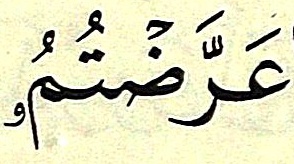 عَرَّضۡتُمُۥ